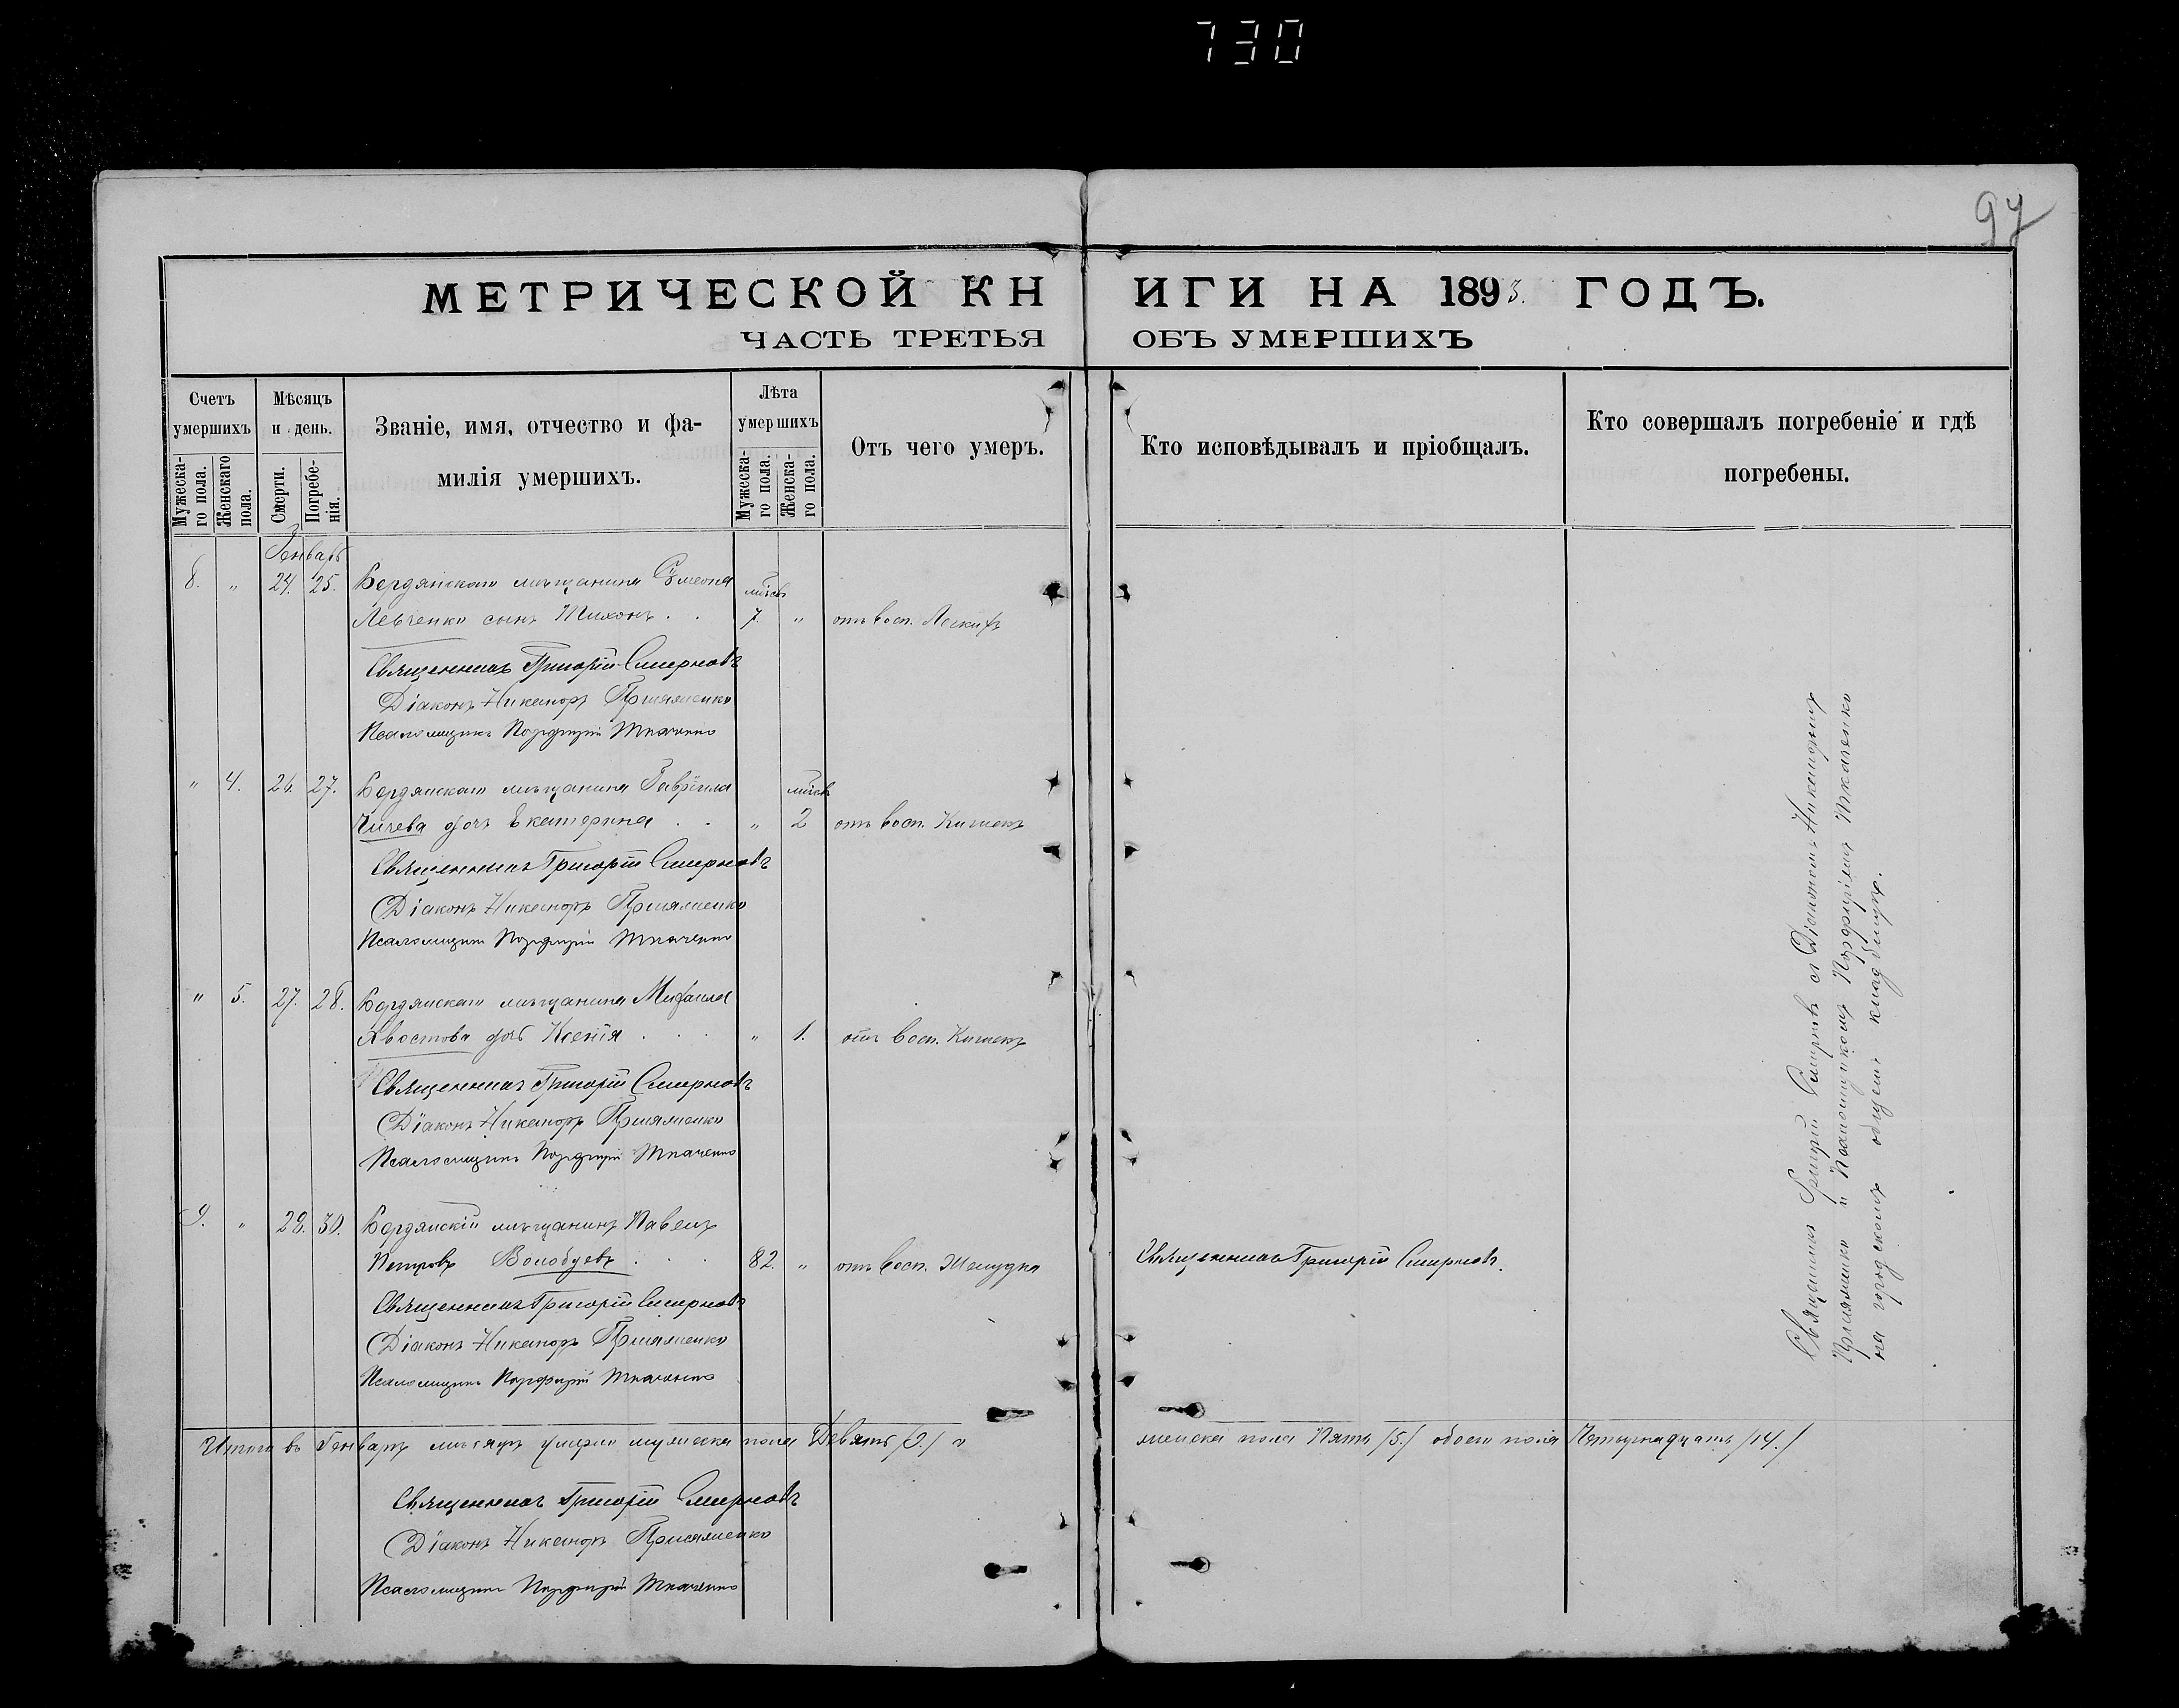 730
97
МЕТРИЧЕСКОЙ КНИГИ НА 1893. ГОДЪ.
ЧАСТЬ ТРЕТЬЯ ОБЪ УМЕРШИХЪ
Счетъ умершихъ
Мужеска-го пола.
Женскаго пола.
Мѣсяцъ и день.
Смерти.
Погребе-нія.
Званіе, имя, отчество и фа-
милія умершихъ.
Лѣта умершихъ
Мужеска-го пола.
Женска-го пола.
Отъ чего умеръ.
Кто исповѣдывалъ и пріобщалъ.
Кто совершалъ погребеніе и гдѣ
погребены.
Генварь
8. " 24. 25. Бердянскаго мѣщанина Сѵмеона мѣсяц
Левченко сынъ Тихонъ . . 7. " отъ восп. Легкихъ
Священникъ Григорій Смирновъ
Діаконъ Никаноръ Присяженко
Псаломщикъ Порфирій Ткаченко
" 4. 26. 27. Бердянскаго мѣщанина Гавріила мѣсяц
дочь Екатерина . . " 2 отъ восп. Кишекъ
Священникъ Григорій Смирновъ
Діаконъ Никаноръ Присяженко
Псаломщикъ Порфирій Ткаченко
" 5. 27. 28. Бердянскаго мѣщанина Михаила
Хвостова дочь Ксенія . . . " 1. отъ восп. Кишекъ
Священникъ Григорій Смирновъ
Діаконъ Никаноръ Присяженко
Псаломщикъ Порфирій Ткаченко
9. " 28. 30. Бердянскій мѣщанинъ Павелъ
Петровъ Волобуевъ . . . 82. " отъ восп. Желудка Священникъ Григорій Смирновъ.
Священникъ Григорій Смирновъ
Діаконъ Никаноръ Присяженко
Псаломщикъ Порфирій Ткаченко
Священникъ Григорій Смирновъ съ Діакономъ Никаноромъ
Присяженко и Псаломщикомъ Порфиріемъ Ткаченко
на городскомъ общемъ кладбищѣ.
Итого въ Генварѣ мѣсяцѣ умерло мужеска пола Девять /9./ и женска пола Пять /5./ обоего пола Четырнадцать /14./
Священникъ Григорій Смирновъ
Діаконъ Никаноръ Присяженко
Псаломщикъ Порфирій Ткаченко